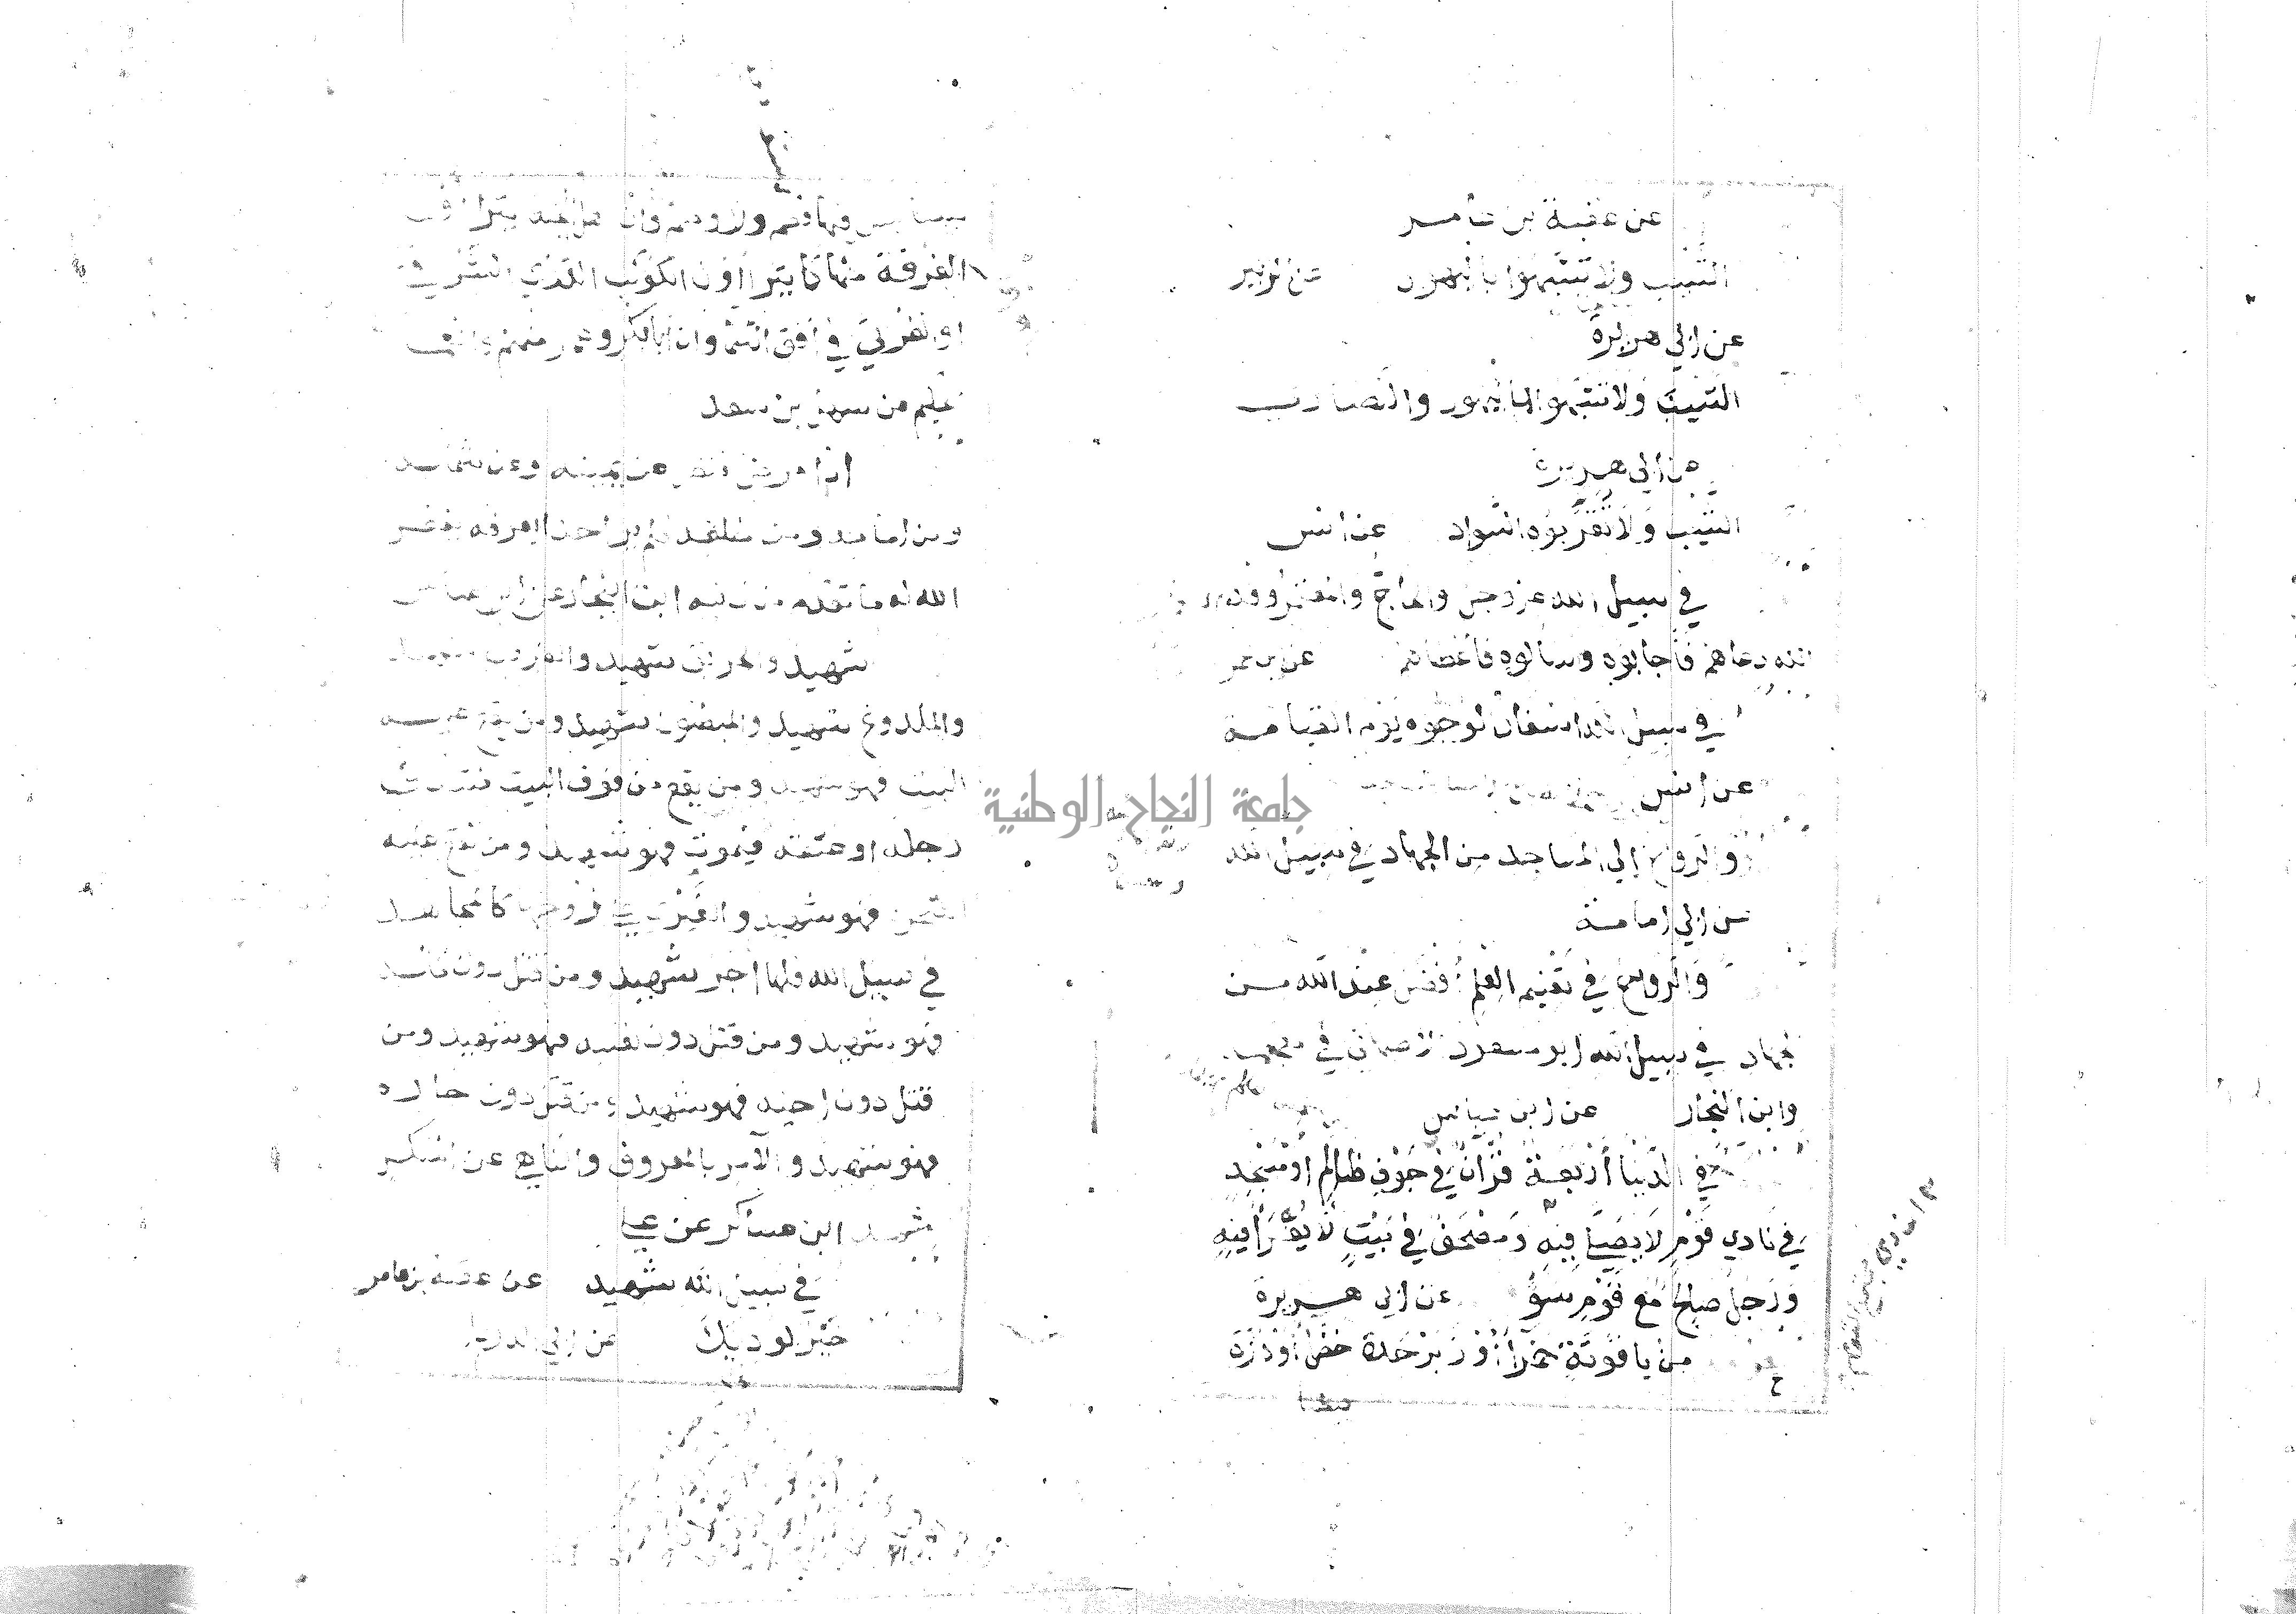 عن عقبة بن عامر
الشيب ولا تشبهوا باليهود عن الزبير
عن ابي هريرة
الشيب ولا تشبهوا باليهود والنصارى
عن ابي هريرة
الشيب ولا تقربوه السواد عن انس
في سبيل الله عز وجل والحاج والمعتمر وفد
الله دعاهم فأجابوه وسالوه فأعطاهم عن بن عمر
في سبيل الله اسفار الوجوه يوم القيامة
عن انس
والرواح إلى المساجد من الجهاد في سبيل الله
عن ابي امامة
والرواح في تعليم العلم أفضل عند الله من
الجهاد في سبيل الله ابو مسعود الاصبهاني في معجمه
وابن النجار عن ابن عباس
في الدنيا أربعة قرآن في جوف ظالم أو مسجد
في نادي قوم لا يصلى فيه ومصحف في بيت لا يقرأ فيه
ورجل صالح مع قوم سوء عن ابي هريرة
من ياقوتة حمرا أو زبرجدة خضرا أو درة
بيضا
ليس فيها فصم ولا وصم وان اهل الجنة يتراءون
الغرفة منها كما يتراؤون الكوكب الدري الشرقي
او الغربي في أفق السما وان أبا بكر وعمر منهم وانعما
الحكيم عن سهل بن سعد
اذا مرض فنظر عن يمينه وعن شماله
ومن امامه ومن خلفه فلم ير احدا يعرفه يغفر
الله له ما تقدم من ذنبه ابن النجار عن ابن عباس
شهيد والحريق شهيد والغريب شهيد
والملدوغ شهيد والمبطون شهيد ومن يقع عليه
البيت فهو شهيد ومن يقع من فوق البيت فتندق
رجله او عنقه فيموت فهو شهيد ومن تقع عليه
الصخرة فهو شهيد والغيرى على زوجها كالمجاهد
في سبيل الله فلها اجر شهيد ومن قتل دون ماله
فهو شهيد ومن قتل دون نفسه فهو شهيد ومن
قتل دون اخيه فهو شهيد ومن قتل دون جاره
فهو شهيد والآمر بالمعروف والناهي عن المنكر
شهيد ابن عساكر عن علي
في سبيل الله شهيد عن عقبة بن عامر
خير لو ديك عن ابي الدردا
جامعة النجاح الوطنية